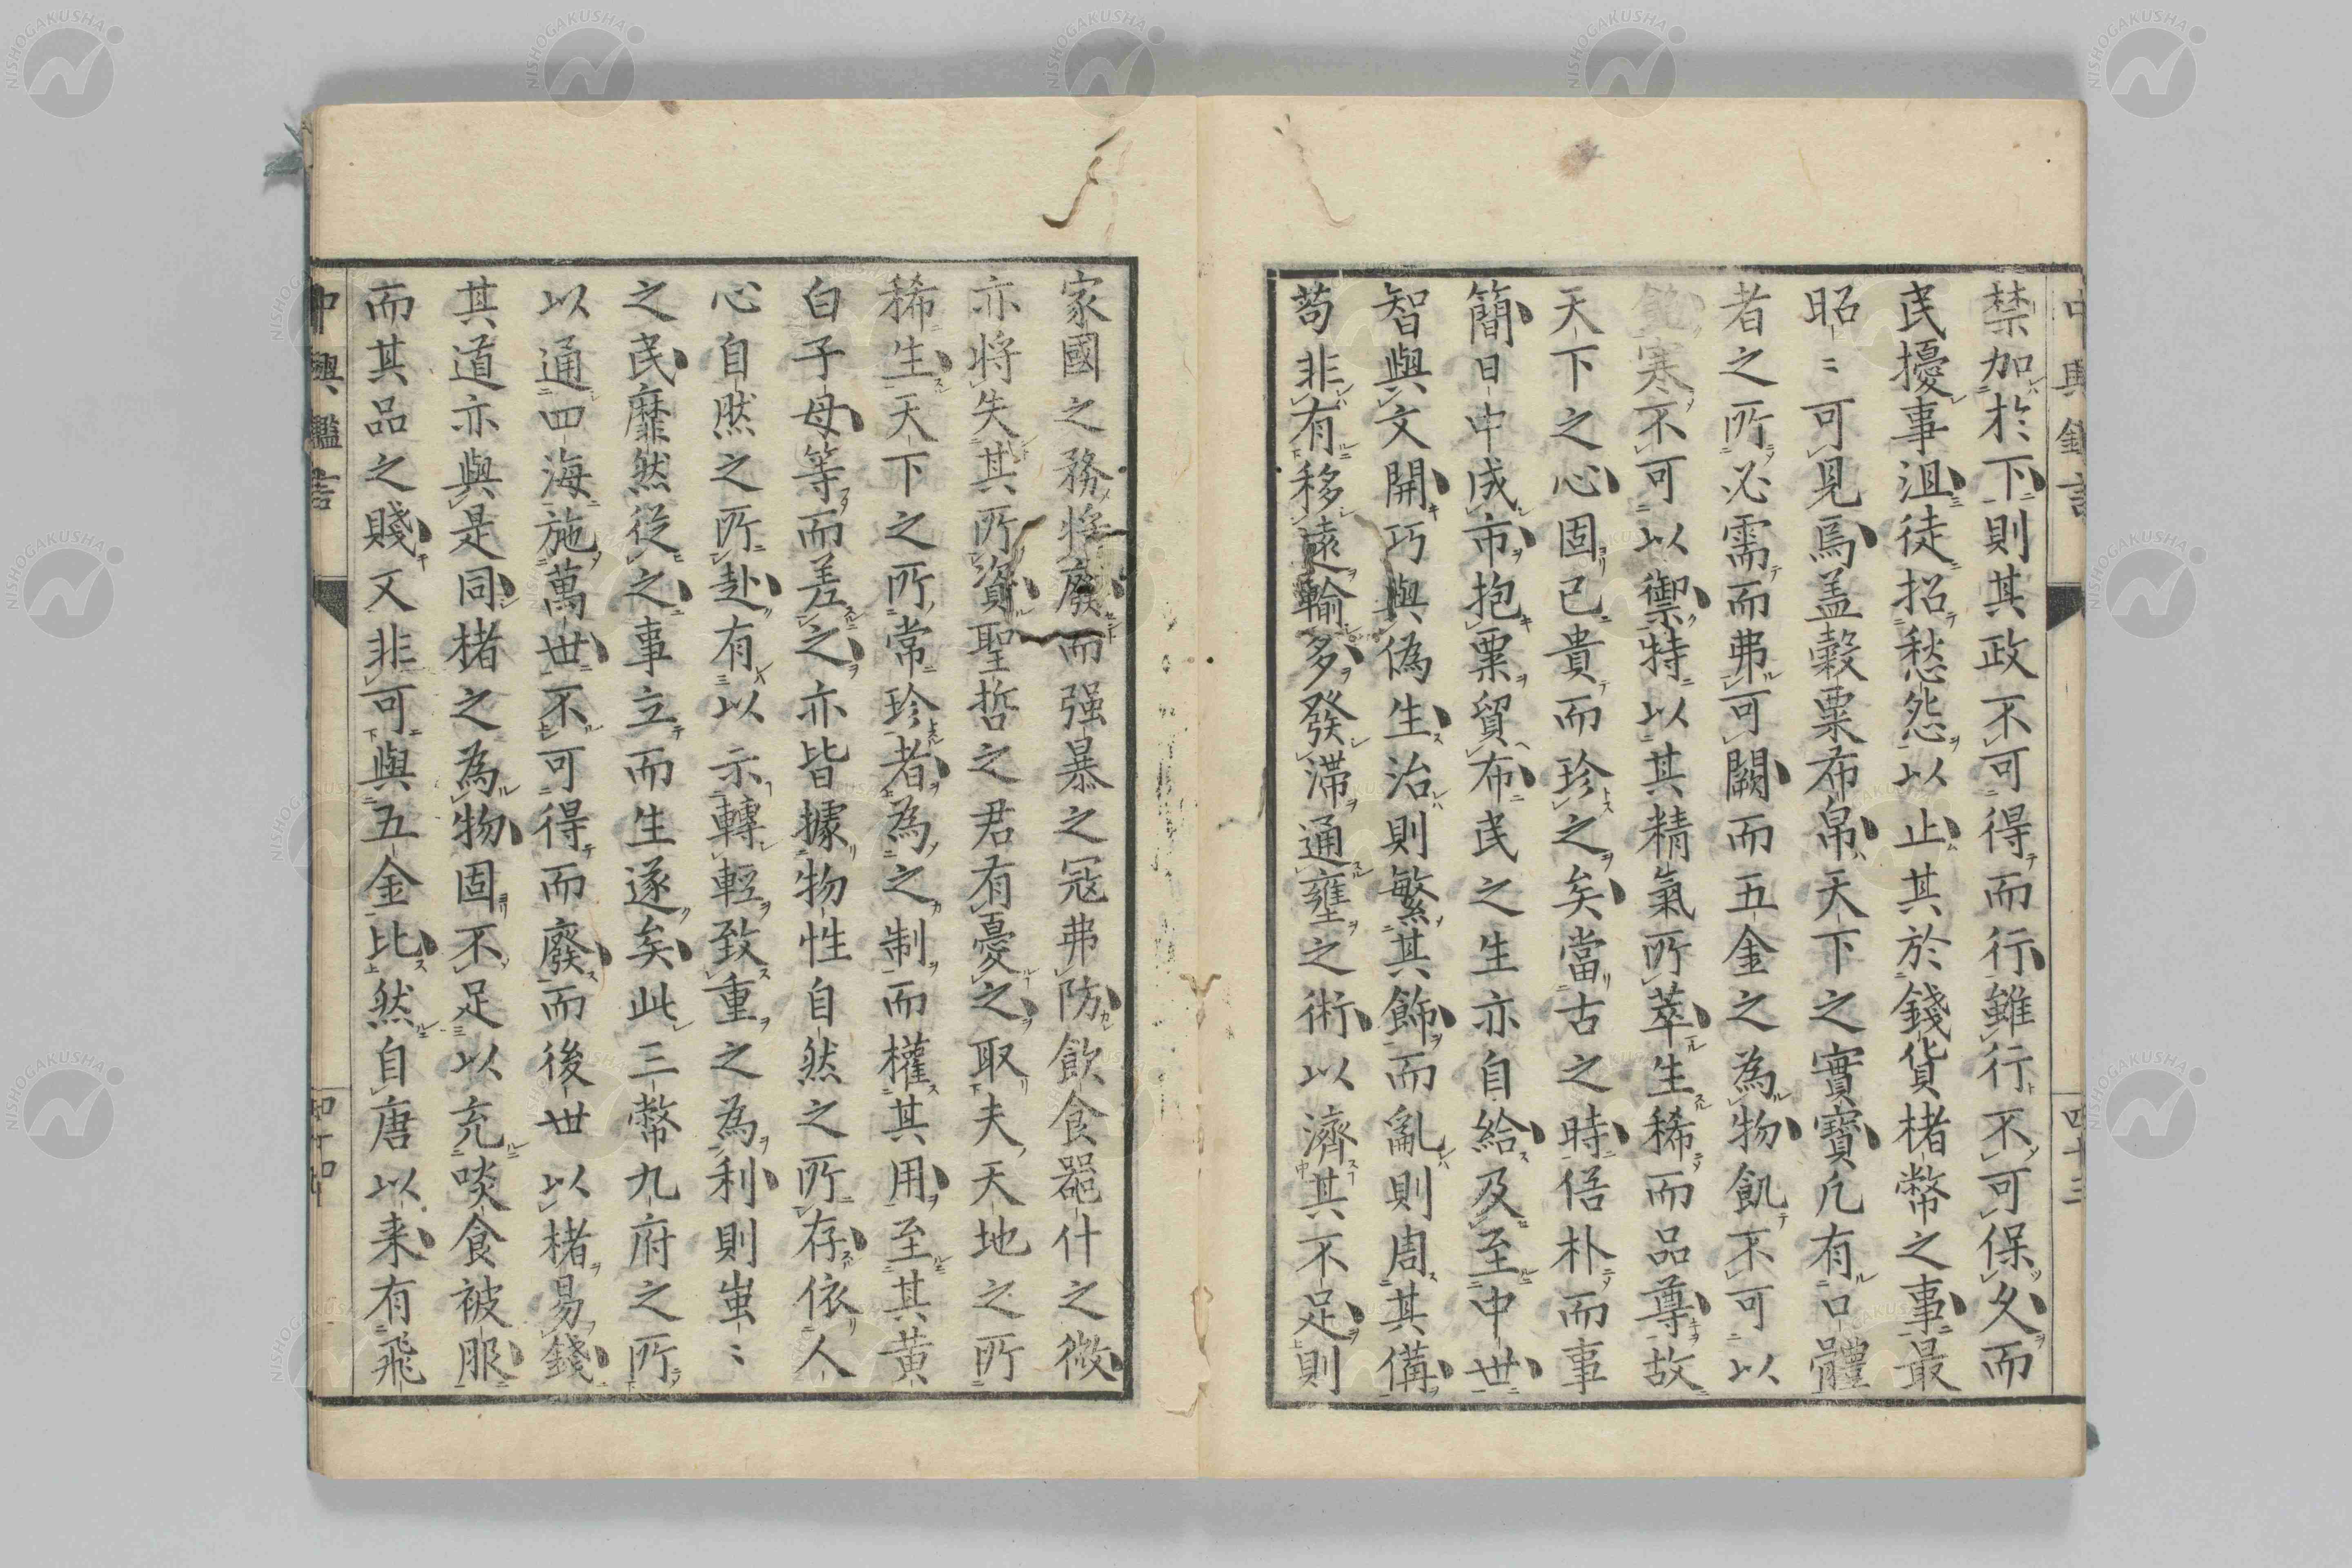 禁加於下則其政不可得而行雖行不可保久而
民擾事沮徒招愁怨以止其於錢貨楮幣之事最
昭〻可見焉盖穀粟布帛天下之實寶凢有口體
者之所必需而弗可闕而五金之為物飢不可以
飽寒不可以禦特以其精氣所萃生稀而品尊故
天下之心固已貴而珍之矣當古之時俗朴而事
簡日中成市抱粟貿布民之生亦自給及至中世
智與文開巧與偽生治則繁其飾而亂則周其備
苟非有移遠輸多發滯通壅之術以濟其不足則
四十三
家國之務將廢而强暴之冦弗防飲食器什之微
亦将失其所資聖哲之君有憂之取夫天地之所
稀生天下之所常珍者為之制而權其用至其黄
白子母等而差之亦皆據物性自然之所存依人
心自然之所赴有以示轉輕致重之為利則蚩〻
之民靡然從之事立而生遂矣此三幣九府之所
以通四海施萬世不可得而廢而後世以楮易錢
其道亦與是同楮之為物固不足以充啖食被服
而其品之賤又非可與五金比然自唐以来有飛
中興鑑言
NISHOGAKUSHA